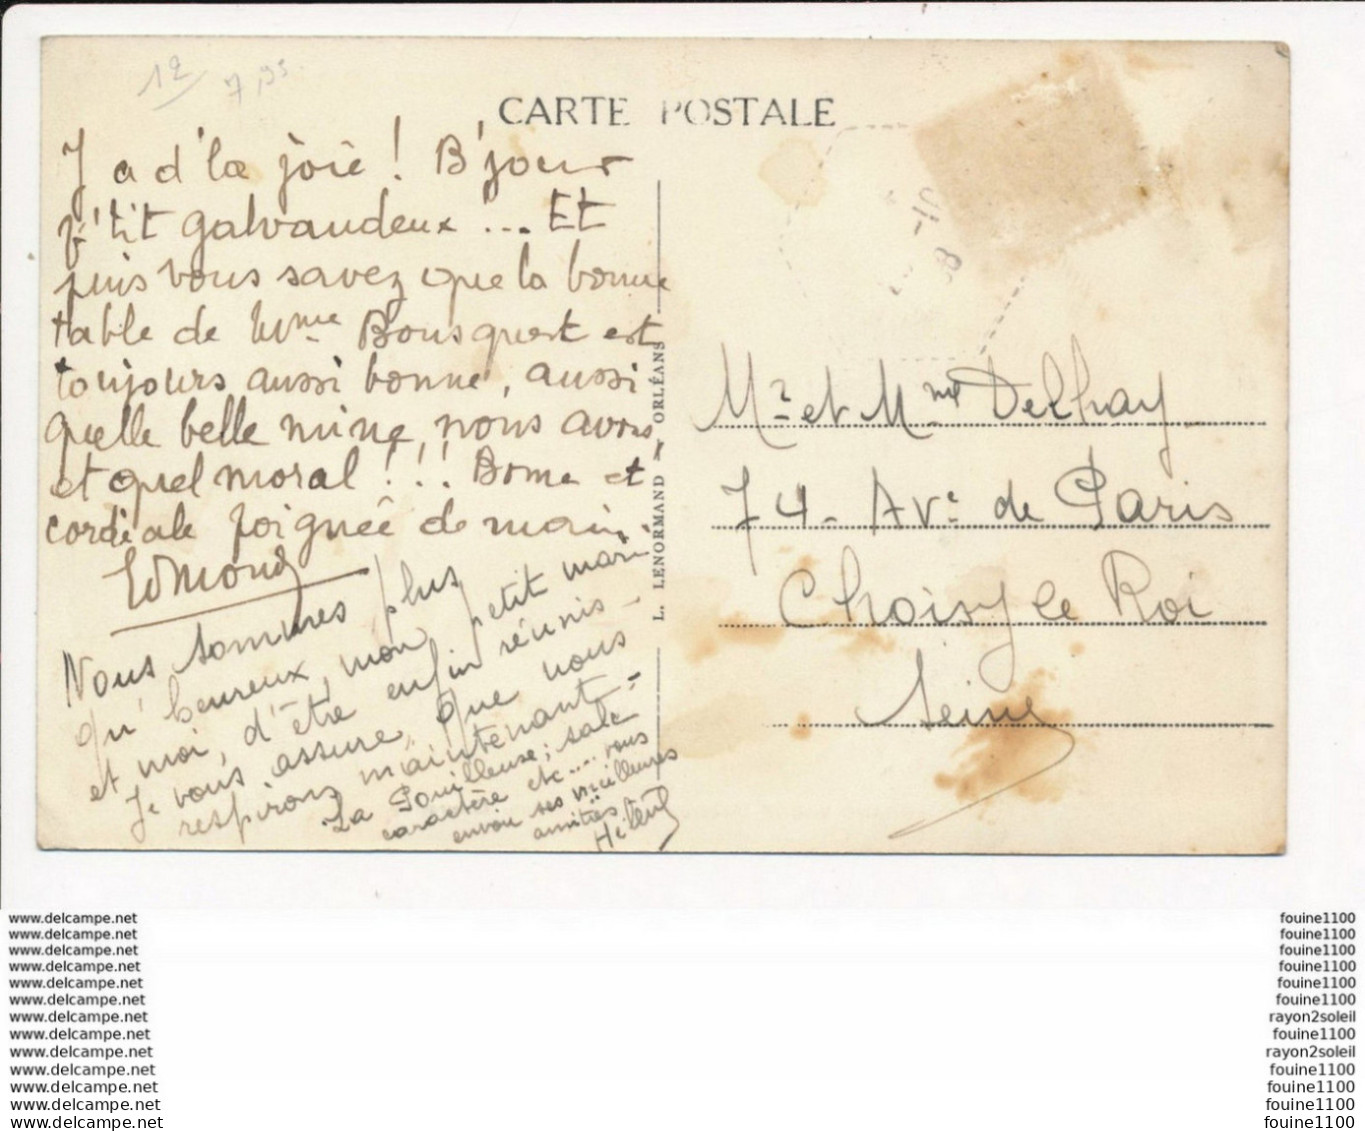 12
7,95
CARTE POSTALE
Y a d'la joie ! B'jour
p'tit galvaudeux ... Et
puis vous savez que la bonne
table de Mme Bousquet est
toujours aussi bonne, aussi
quelle belle mine, nous avons
et quel moral ! ! ! Bonne et
cordiale poignée de main.
Edmond
Nous sommes plus
qu'heureux, mon petit mari
et moi, d'être enfin réunis -
Je vous assure, que nous
respirons maintenant -
La Pouilleuse, sale
caractère etc .... vous
envoie ses meilleures
amitiés.
L. LENORMAND ORLÉANS
-10
38
Mr et Mme Delhay
74 - Ave de Paris
Choisy le Roi
Seine
www.delcampe.net fouine1100
www.delcampe.net fouine1100
www.delcampe.net fouine1100
www.delcampe.net fouine1100
www.delcampe.net fouine1100
www.delcampe.net fouine1100
www.delcampe.net rayon2soleil
www.delcampe.net fouine1100
www.delcampe.net rayon2soleil
www.delcampe.net fouine1100
www.delcampe.net fouine1100
www.delcampe.net fouine1100
www.delcampe.net fouine1100